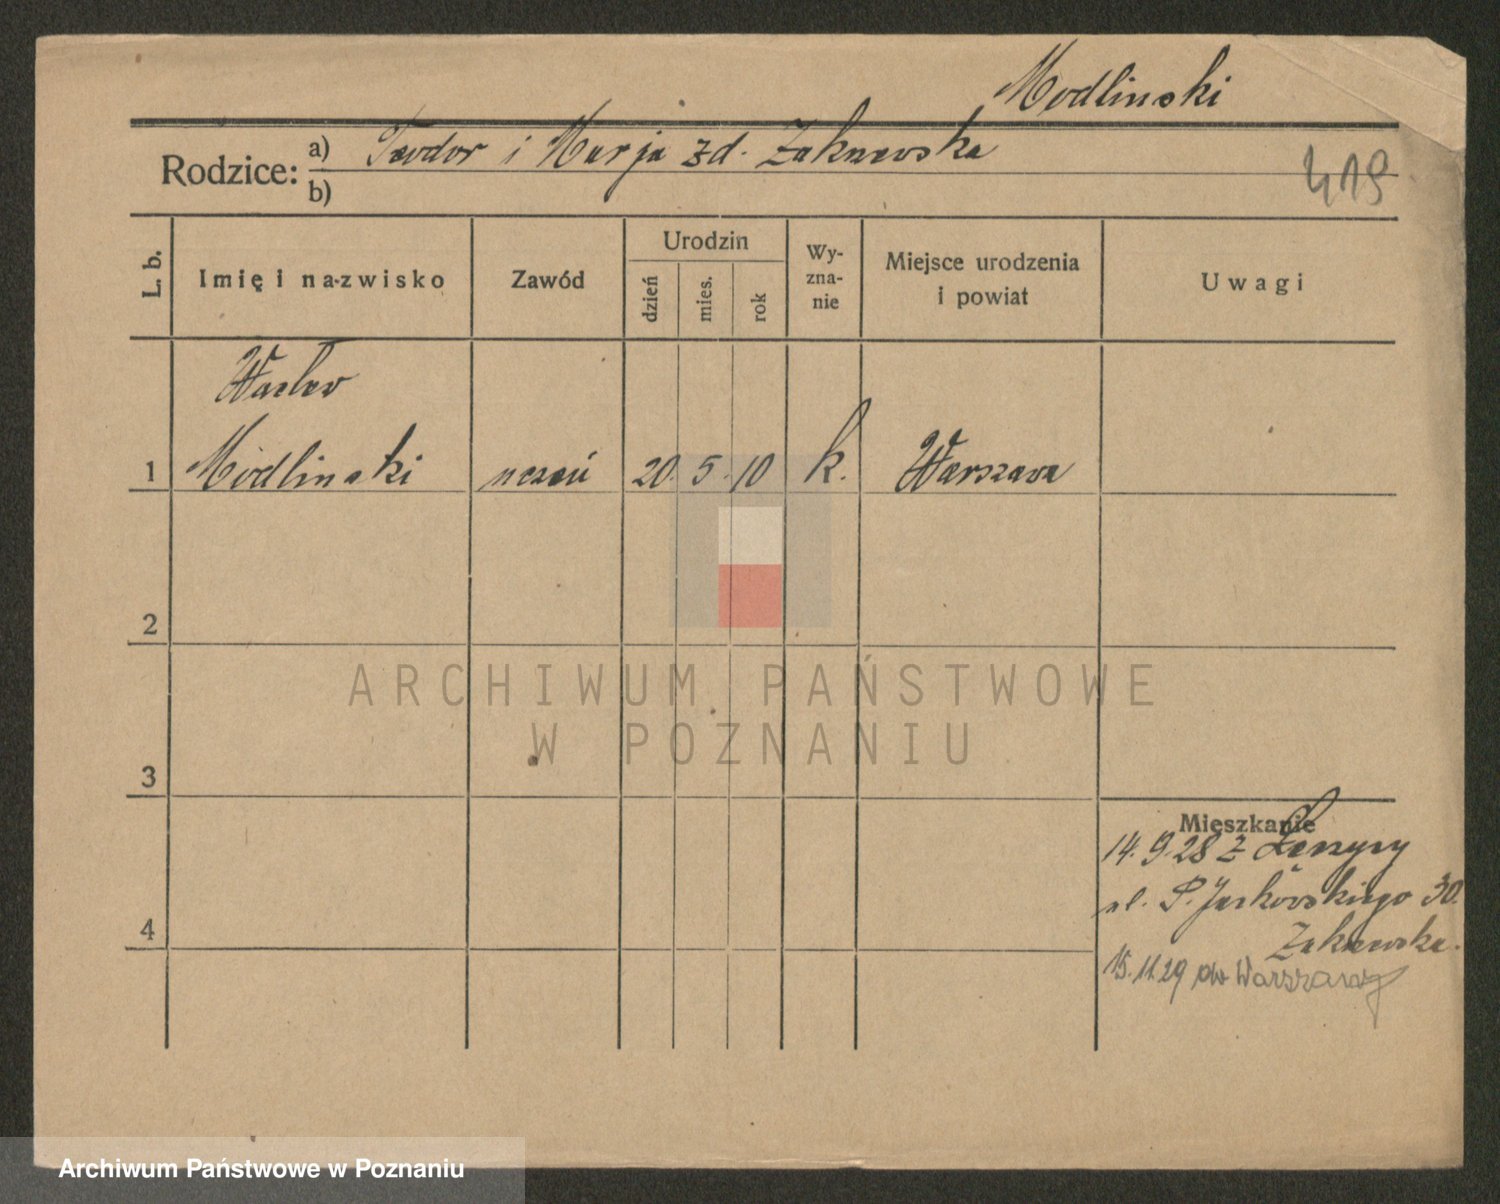 Modlinski
Rodzice: a) Teodor i Marja zd. Zakrzewska
b)
419
L. b.
Imię i nazwisko
Zawód
Urodzin
dzień
mies.
rok
Wy-
zna-
nie
Miejsce urodzenia
i powiat
Uwagi
Wacław
1 Modlinski uczeń 20. 5. 10 k. Warszawa
2
3
Mieszkanie
14. 9. 28 z
ul. P. Jackowskiego 30.
Zakrzewska.
4
15.11.29 do Warszawy
ARCHIWUM PAŃSTWOWE
W POZNANIU
Archiwum Państwowe w Poznaniu